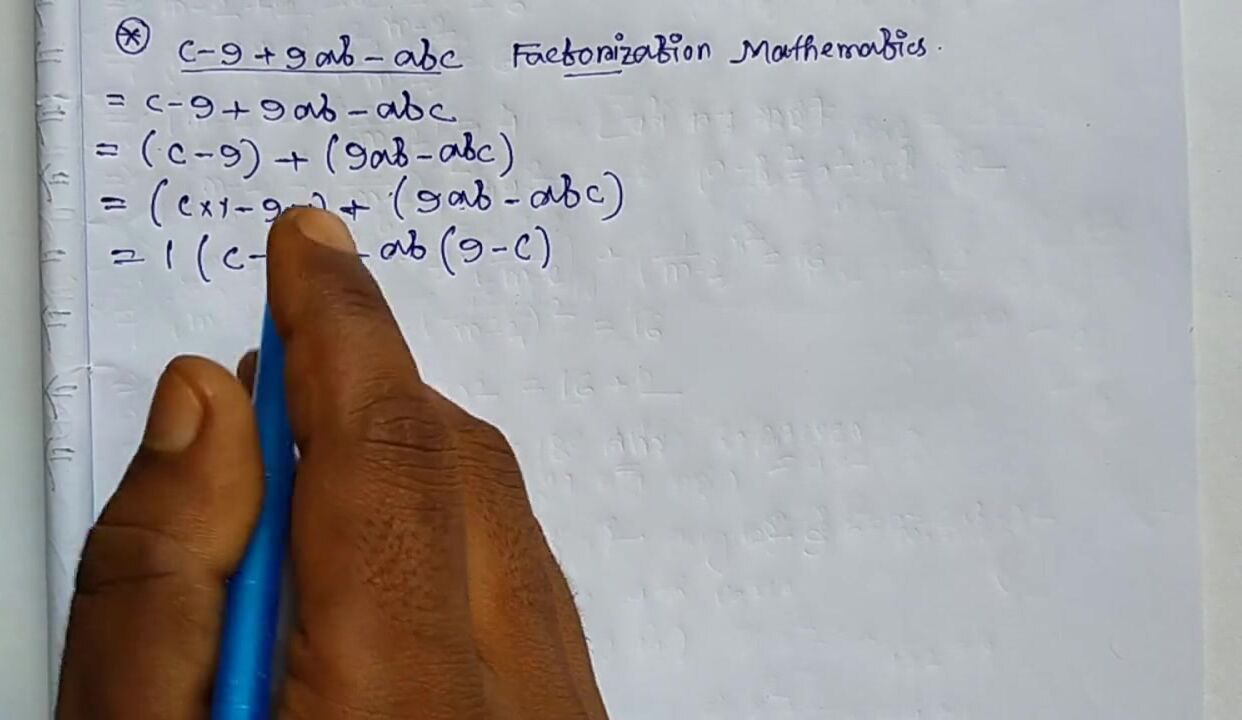 * c-9+9ab-abc Factorization Mathematics.
= c-9+9ab-abc
= (c-9)+(9ab-abc)
= (c×1-9 )+(9ab-abc)
= 1(c- ab(9-c)